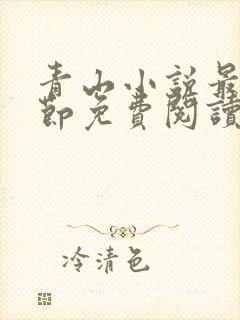 青山小説最
節免費閱讀
冷清色